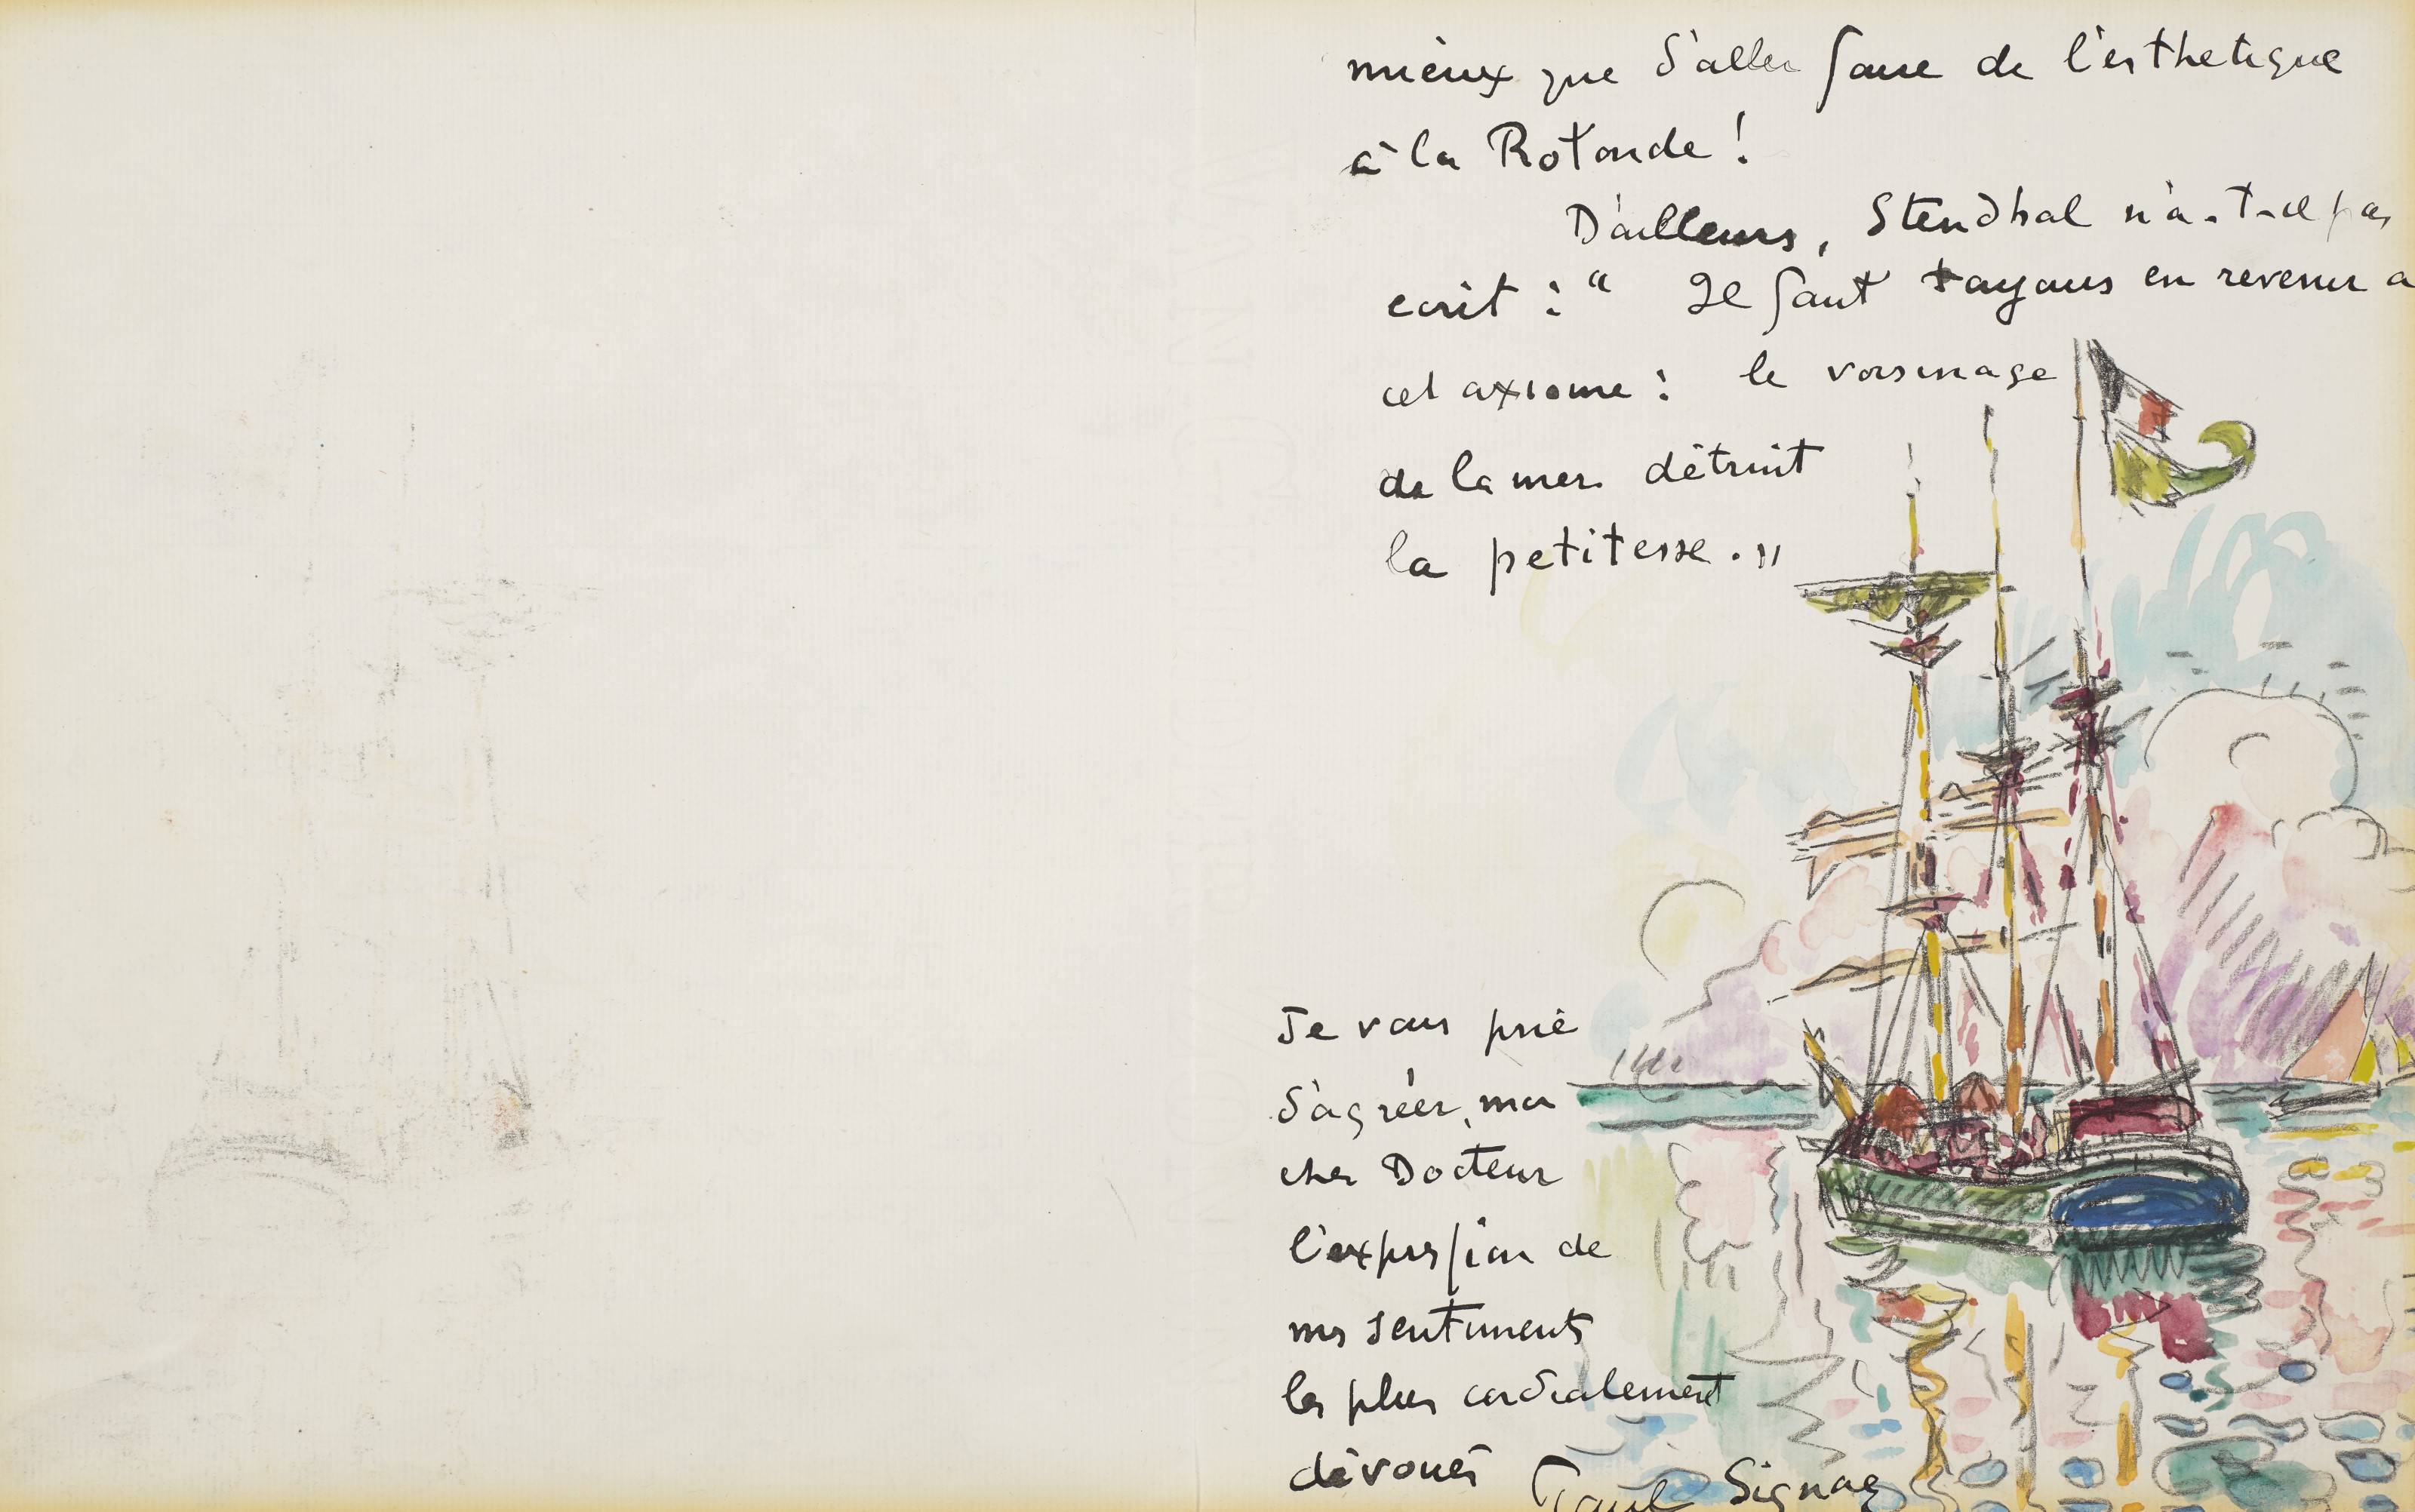 mieux que d'aller faire de l'esthetique
à la Rotonde !
D'ailleurs, Stendhal n'a-t-il pas
ecrit : " Il faut toujours en revenir a
cet axiome : le voisinage
de la mer détruit
la petitesse. "
Je vous prie
d'agréer, mon
cher Docteur
l'expression de
mes sentiments
les plus cordialement
dévoués
Paul Signac